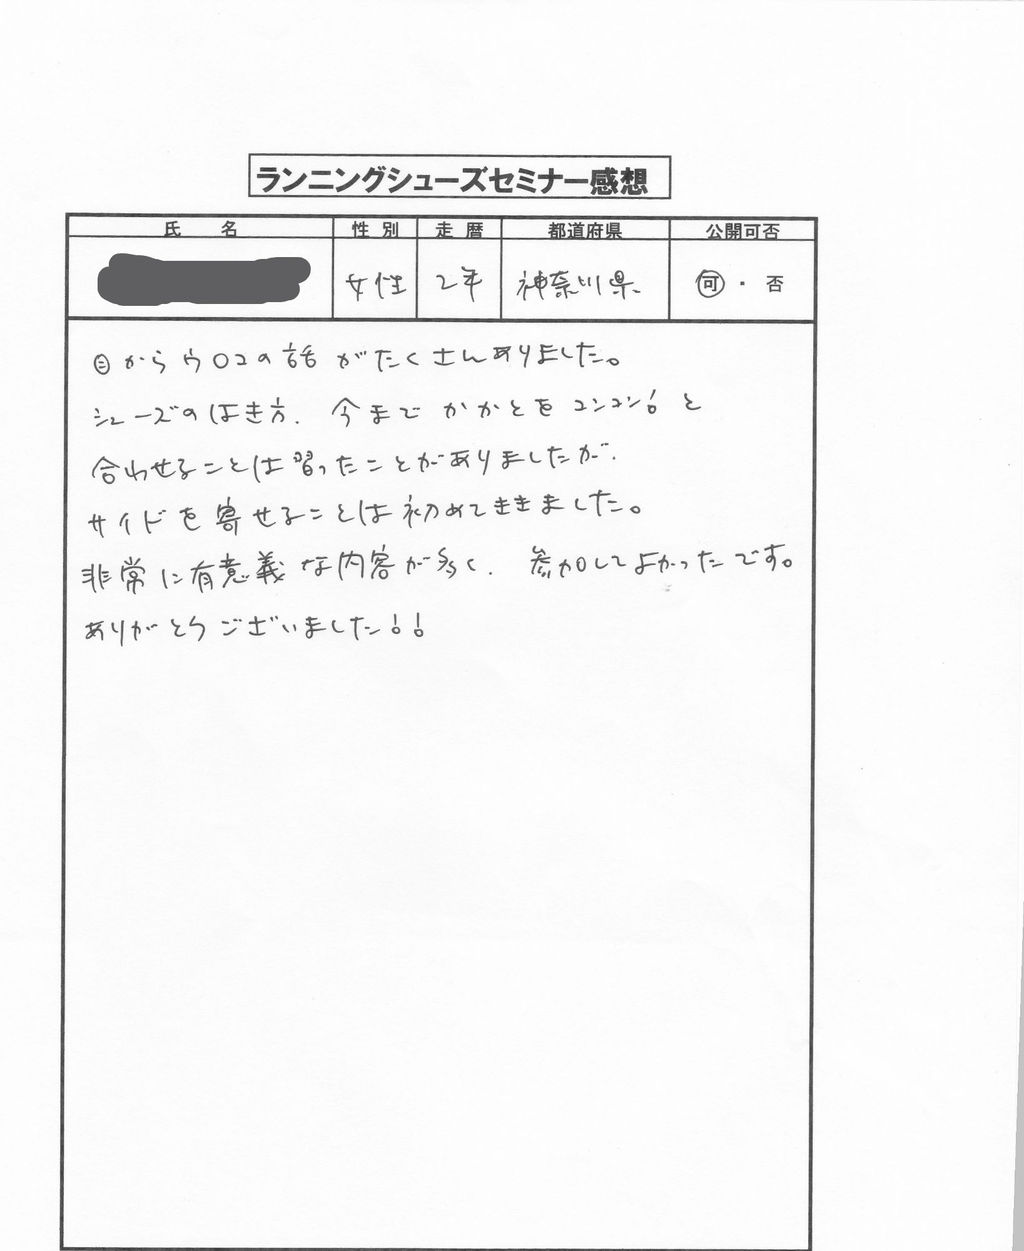 ランニングシューズセミナー感想
氏 名 性 別 走 暦 都道府県 公開可否
女性 2年 神奈川県 可 ・ 否
目からウロコの話がたくさんありました。
シューズのはき方、今まで かかとをコンコン!と
合わせることは習ったことがありましたが、
サイドを寄せることは初めてききました。
非常に有意義な内容が多く、参加してよかったです。
ありがとうございました!!